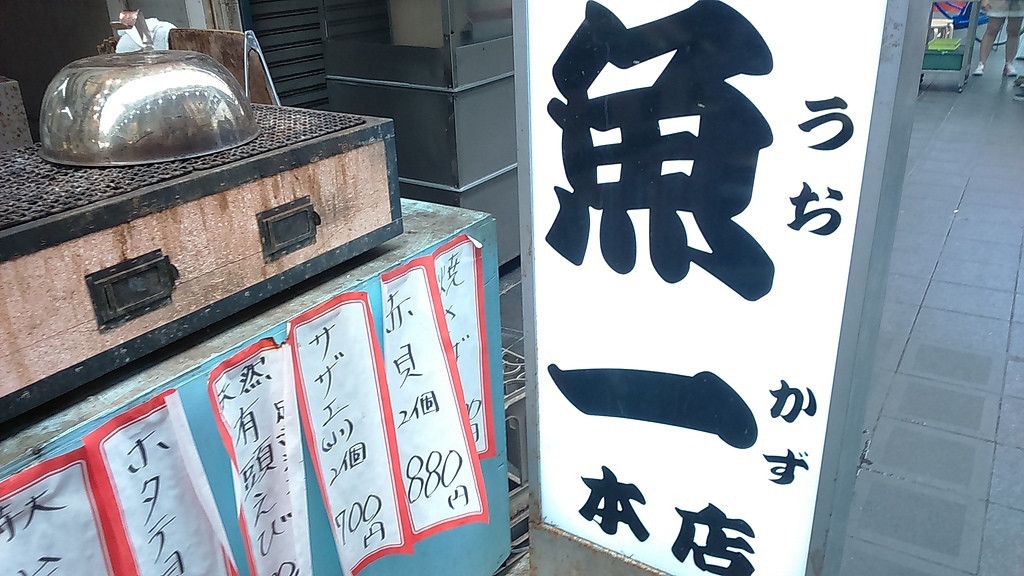 魚一
うお
かず
本店
赤貝
2個
880円
サザエ(小)
2個
700円
有頭えび
ホタテ